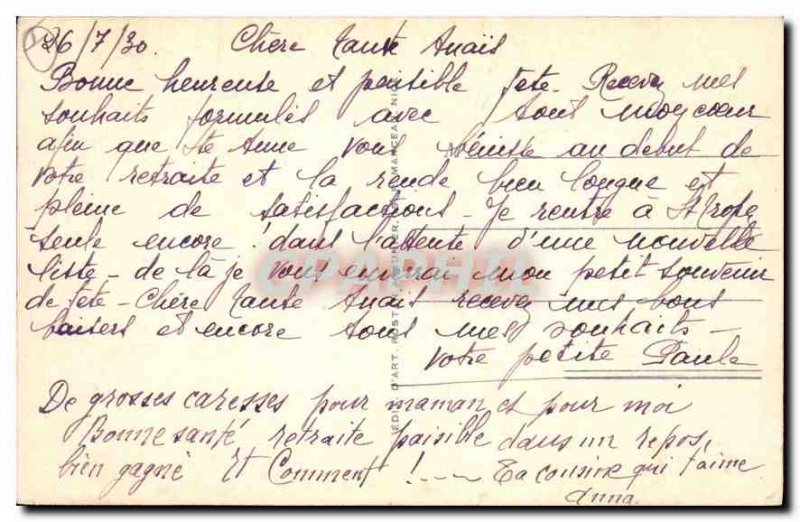 26/7/30. Chère Tante Anaïs
Bonne heureuse et paisible fete. Recevez mes
souhaits formulés avec tout mon cœur
afin que Ste Anne vous bénisse au debut de
votre retraite et la rende bien longue et
pleine de satisfactions. Je rentre à St Trope
seule encore ! dans l'attente d'une nouvelle
liste - de là je vous enverrai mon petit souvenir
de fete - Chère Tante Anaïs recevez mes bons
baisers et encore tous mes souhaits -
votre petite Paule
De grosses caresses pour maman et pour moi
Bonne santé retraite paisible dans un repos,
bien gagné Et Comment ! Ta cousine qui t'aime
Anna.
CPAPHIL